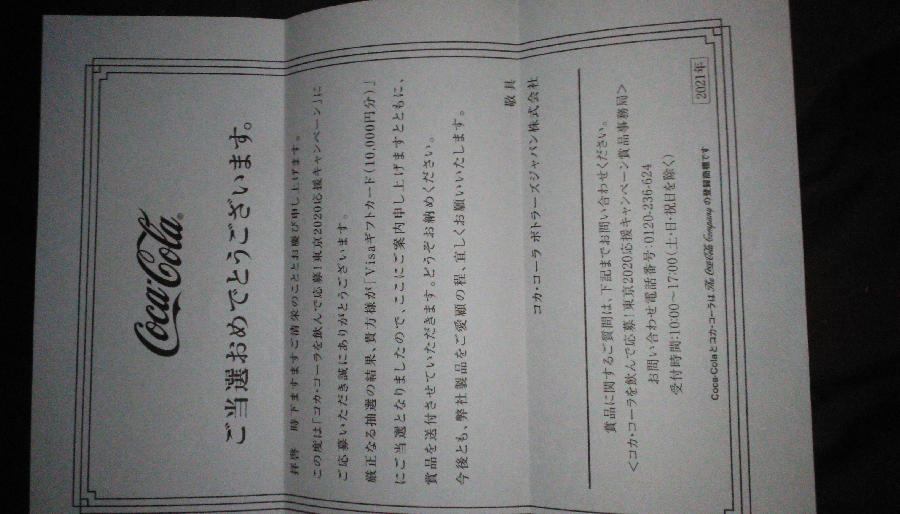 Coca-Cola®
ご当選おめでとうございます。
拝啓 時下ますますご清栄のこととお慶び申し上げます。
この度は「コカ・コーラを飲んで応募!東京2020応援キャンペーン」に
ご応募いただき誠にありがとうございます。
厳正なる抽選の結果、貴方様が「Visaギフトカード(10,000円分)」
にご当選となりましたので、ここにご案内申し上げますとともに、
賞品を送付させていただきます。どうぞお納めください。
今後とも、弊社製品をご愛顧の程、宜しくお願いいたします。
敬具
コカ・コーラ ボトラーズジャパン株式会社
賞品に関するご質問は、下記までお問い合わせください。
<コカ・コーラを飲んで応募!東京2020応援キャンペーン賞品事務局>
お問い合わせ電話番号:0120-236-624
受付時間:10:00〜17:00(土・日・祝日を除く)
2021年
Coca-Colaとコカ・コーラは The Coca-Cola Company の登録商標です